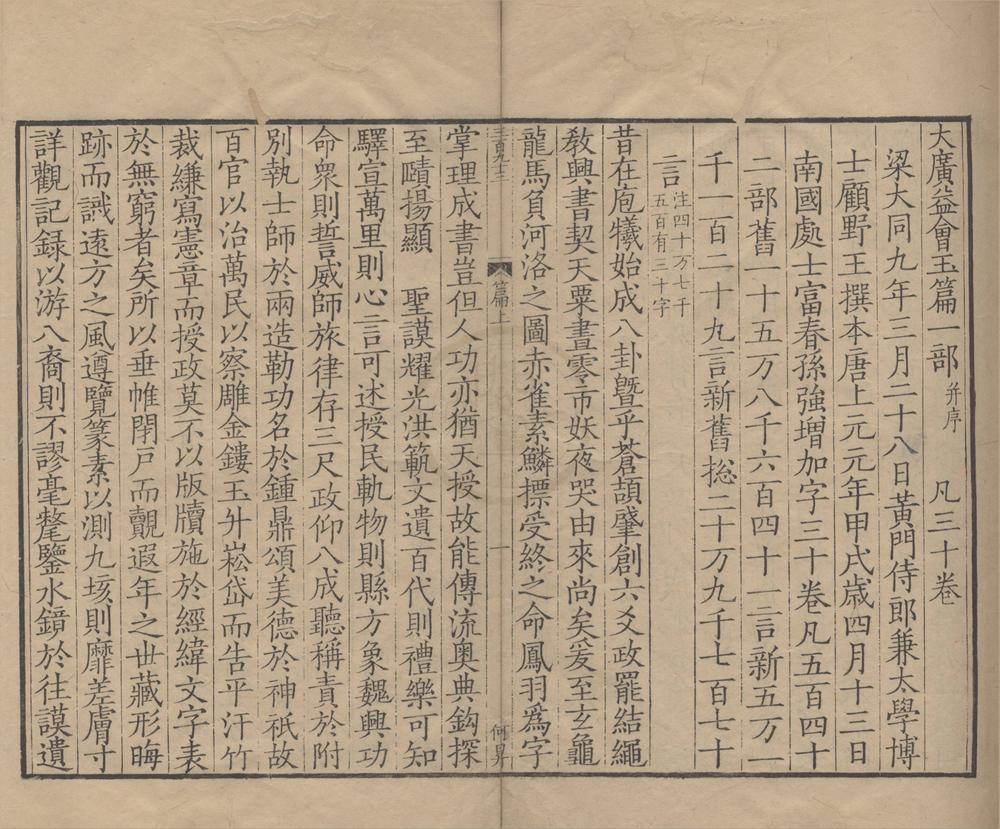 大廣益會玉篇一部 并序 凡三十卷
梁大同九年三月二十八日黃門侍郎兼太學博
士顧野王撰本唐上元元年甲戌歲四月十三日
南國處士富春孫強增加字三十卷凡五百四十
二部舊一十五万八千六百四十一言新五万一
千一百二十九言新舊揔二十万九千七百七十
言 注四十万七千
五百有三十字
昔在庖犧始成八卦暨乎蒼頡肇創六爻政罷結繩
教興書契天粟晝零市妖夜哭由來尚矣爰至玄龜
龍馬負河洛之圖赤雀素鱗摽受終之命鳳羽爲字
篇上
一
何昇
掌理成書豈但人功亦猶天授故能傳流奧典鈎探
至賾揚顯 聖謨耀光洪範文遺百代則禮樂可知
驛宣萬里則心言可述授民軌物則縣方象魏興功
命衆則誓威師旅律存三尺政仰八成聽稱責於附
別執士師於兩造勒功名於鍾鼎頌美德於神祇故
百官以治萬民以察雕金鏤玉升崧岱而告平汗竹
裁縑寫憲章而授政莫不以版牘施於經緯文字表
於無窮者矣所以垂帷閉戸而覿遐年之世藏形晦
跡而識遠方之風遵覽篆素以測九垓則靡差膚寸
詳觀記録以游八裔則不謬毫氂鑒水鏡於往謨遺